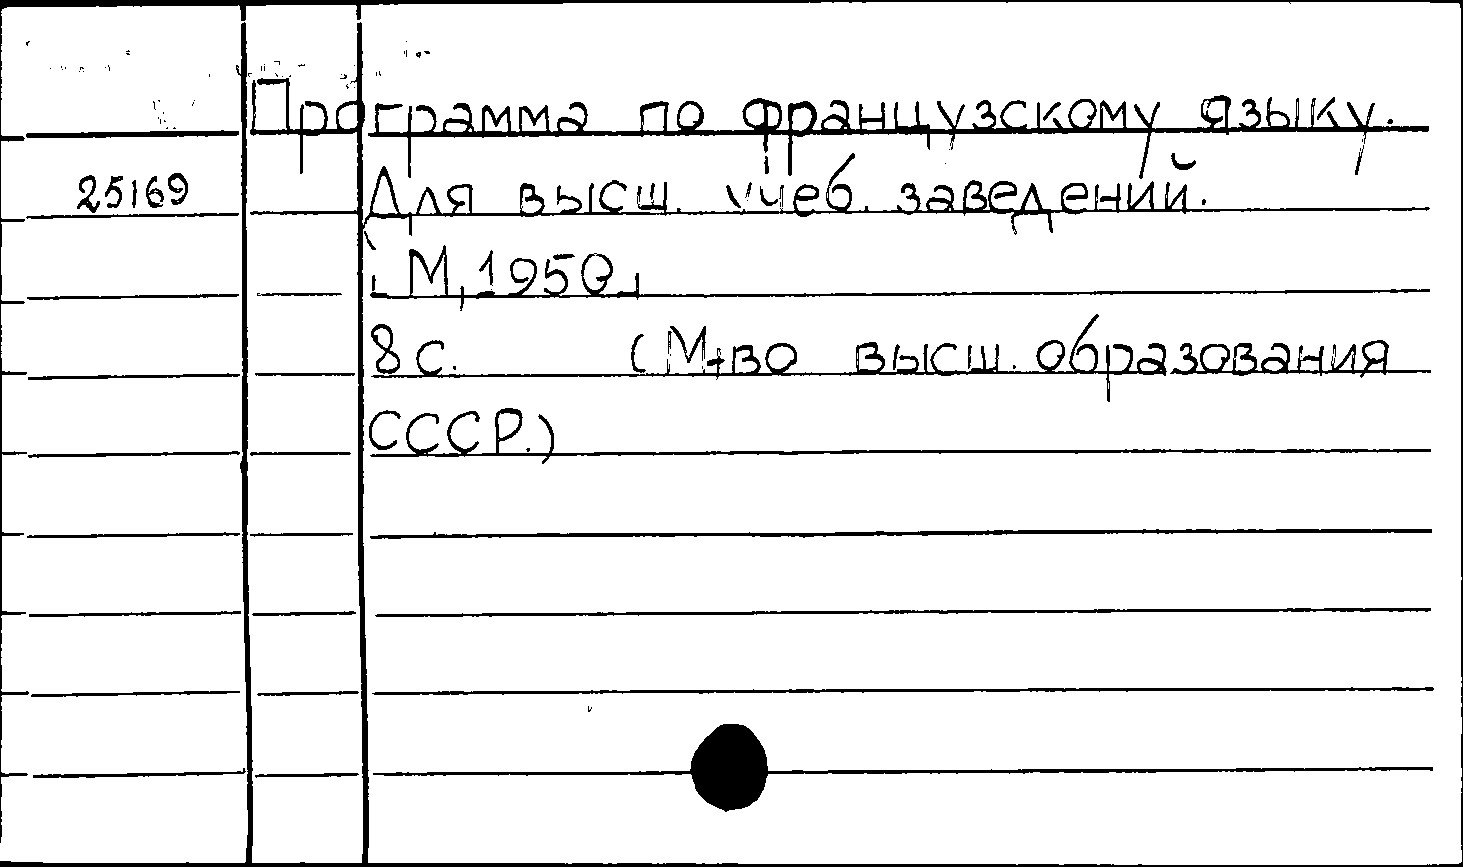 Программа по французскому языку.
25169 Для высш. учеб. заведений.
[М, 1950]
8 с. (М-во высш. образования
СССР.)